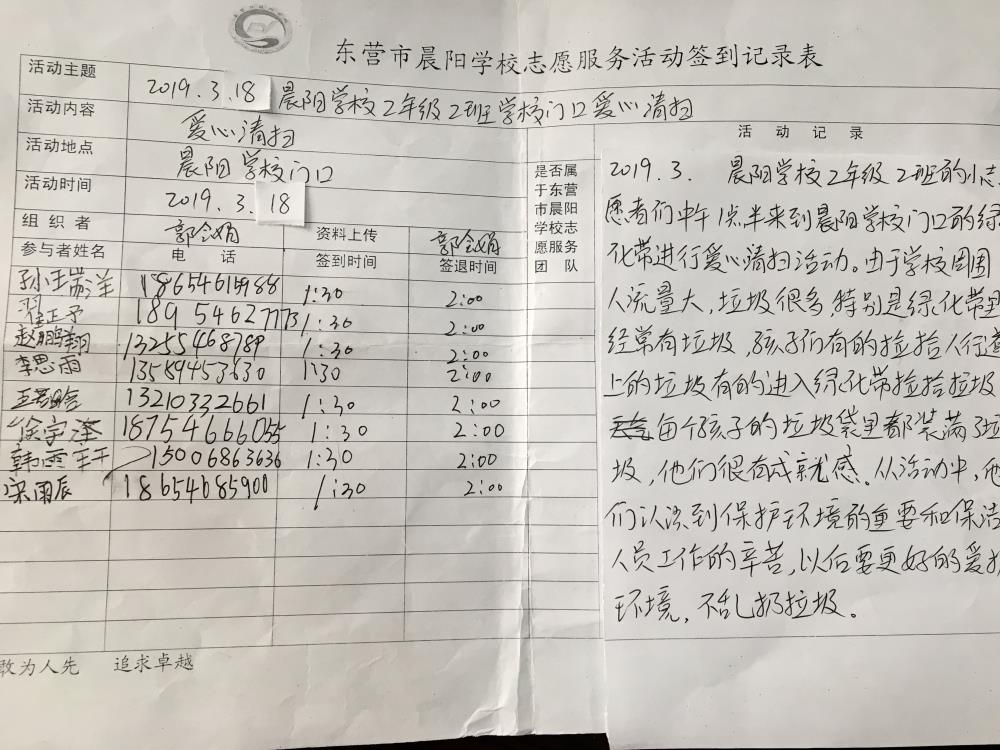 东营市晨阳学校志愿服务活动签到记录表
活动主题 2019.3.18 晨阳学校2年级2班学校门口爱心清扫
活动内容 爱心清扫
活动地点 晨阳学校门口
活动时间 2019.3.18
组织者 郭会娟 资料上传 郭会娟
参与者姓名 电话 签到时间 签退时间
18654615988 1:30 2:00
翟正予 18954627773 1:30 2:00
赵鹏翔 13255468789 1:30 2:00
李思雨 13589453630 1:30 2:00
13210332661 1:30 2:00
徐宇泽 18754666055 1:30 2:00
韩雪 15006863636 1:30 2:00
梁雨辰 18654685900 1:30 2:00
敢为人先 追求卓越
是否属
于东营
市晨阳
学校志
愿服务
团队
活动记录
2019.3. 晨阳学校2年级2班的小志
愿者们中午1点半来到晨阳学校门口的绿
化带进行爱心清扫活动。由于学校周围
人流量大,垃圾很多,特别是绿化带里
经常有垃圾,孩子们有的捡拾人行道
上的垃圾有的进入绿化带捡拾垃圾
每个孩子的垃圾袋里都装满了垃
圾,他们很有成就感。从活动中,他
们认识到保护环境的重要和保洁
人员工作的辛苦,以后要更好的爱护
环境,不乱扔垃圾。